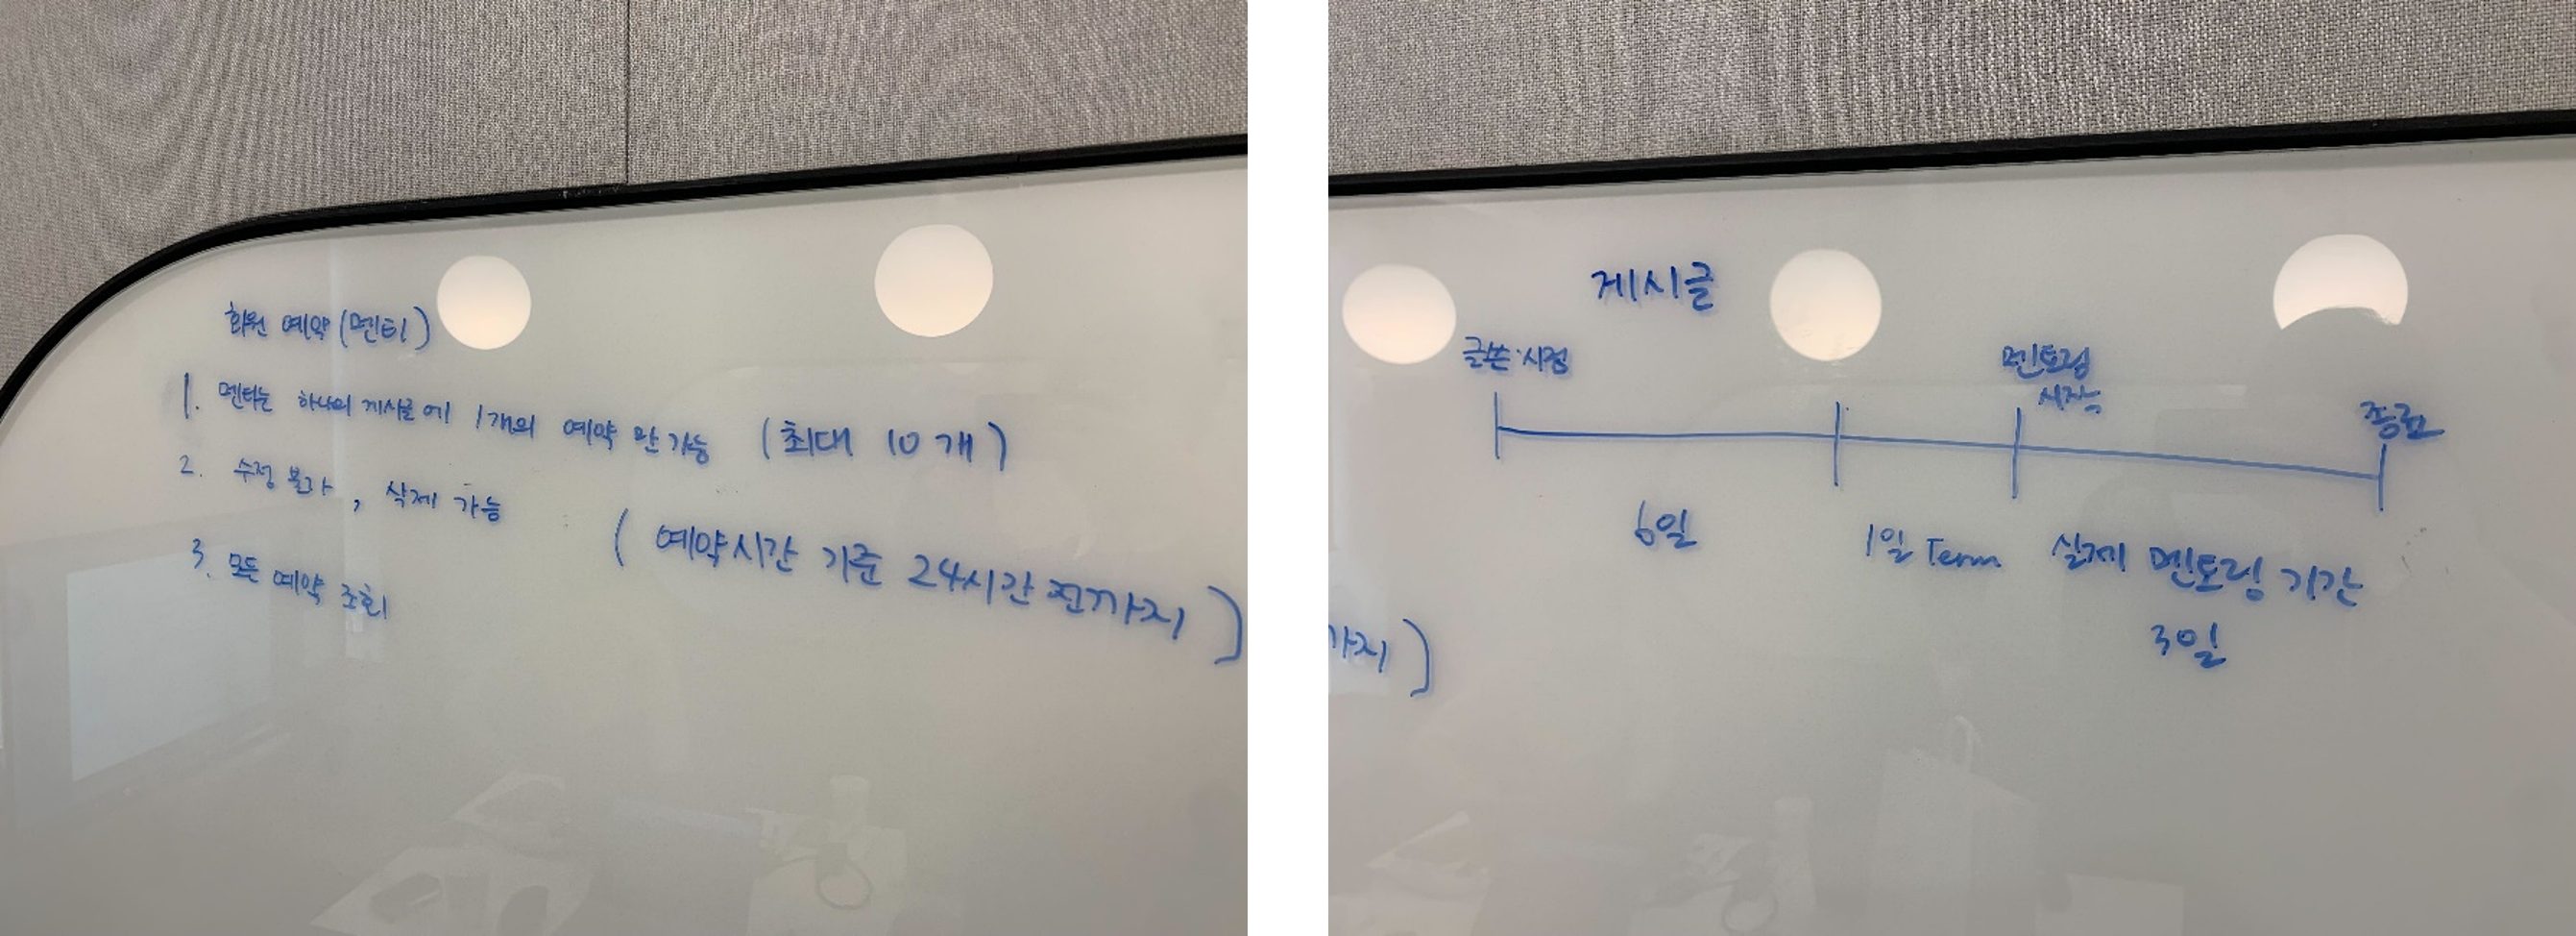 회원 예약 (멘티)
1. 멘티는 하나의 게시글에 1개의 예약만 가능 (최대 10개)
2. 수정 불가, 삭제 가능
(예약시간 기준 24시간 전까지)
3. 모든 예약 조회
게시글
글쓴 시점
멘토링
시작
종료
6일
1일 Term
실제 멘토링 기간
3일
까지)